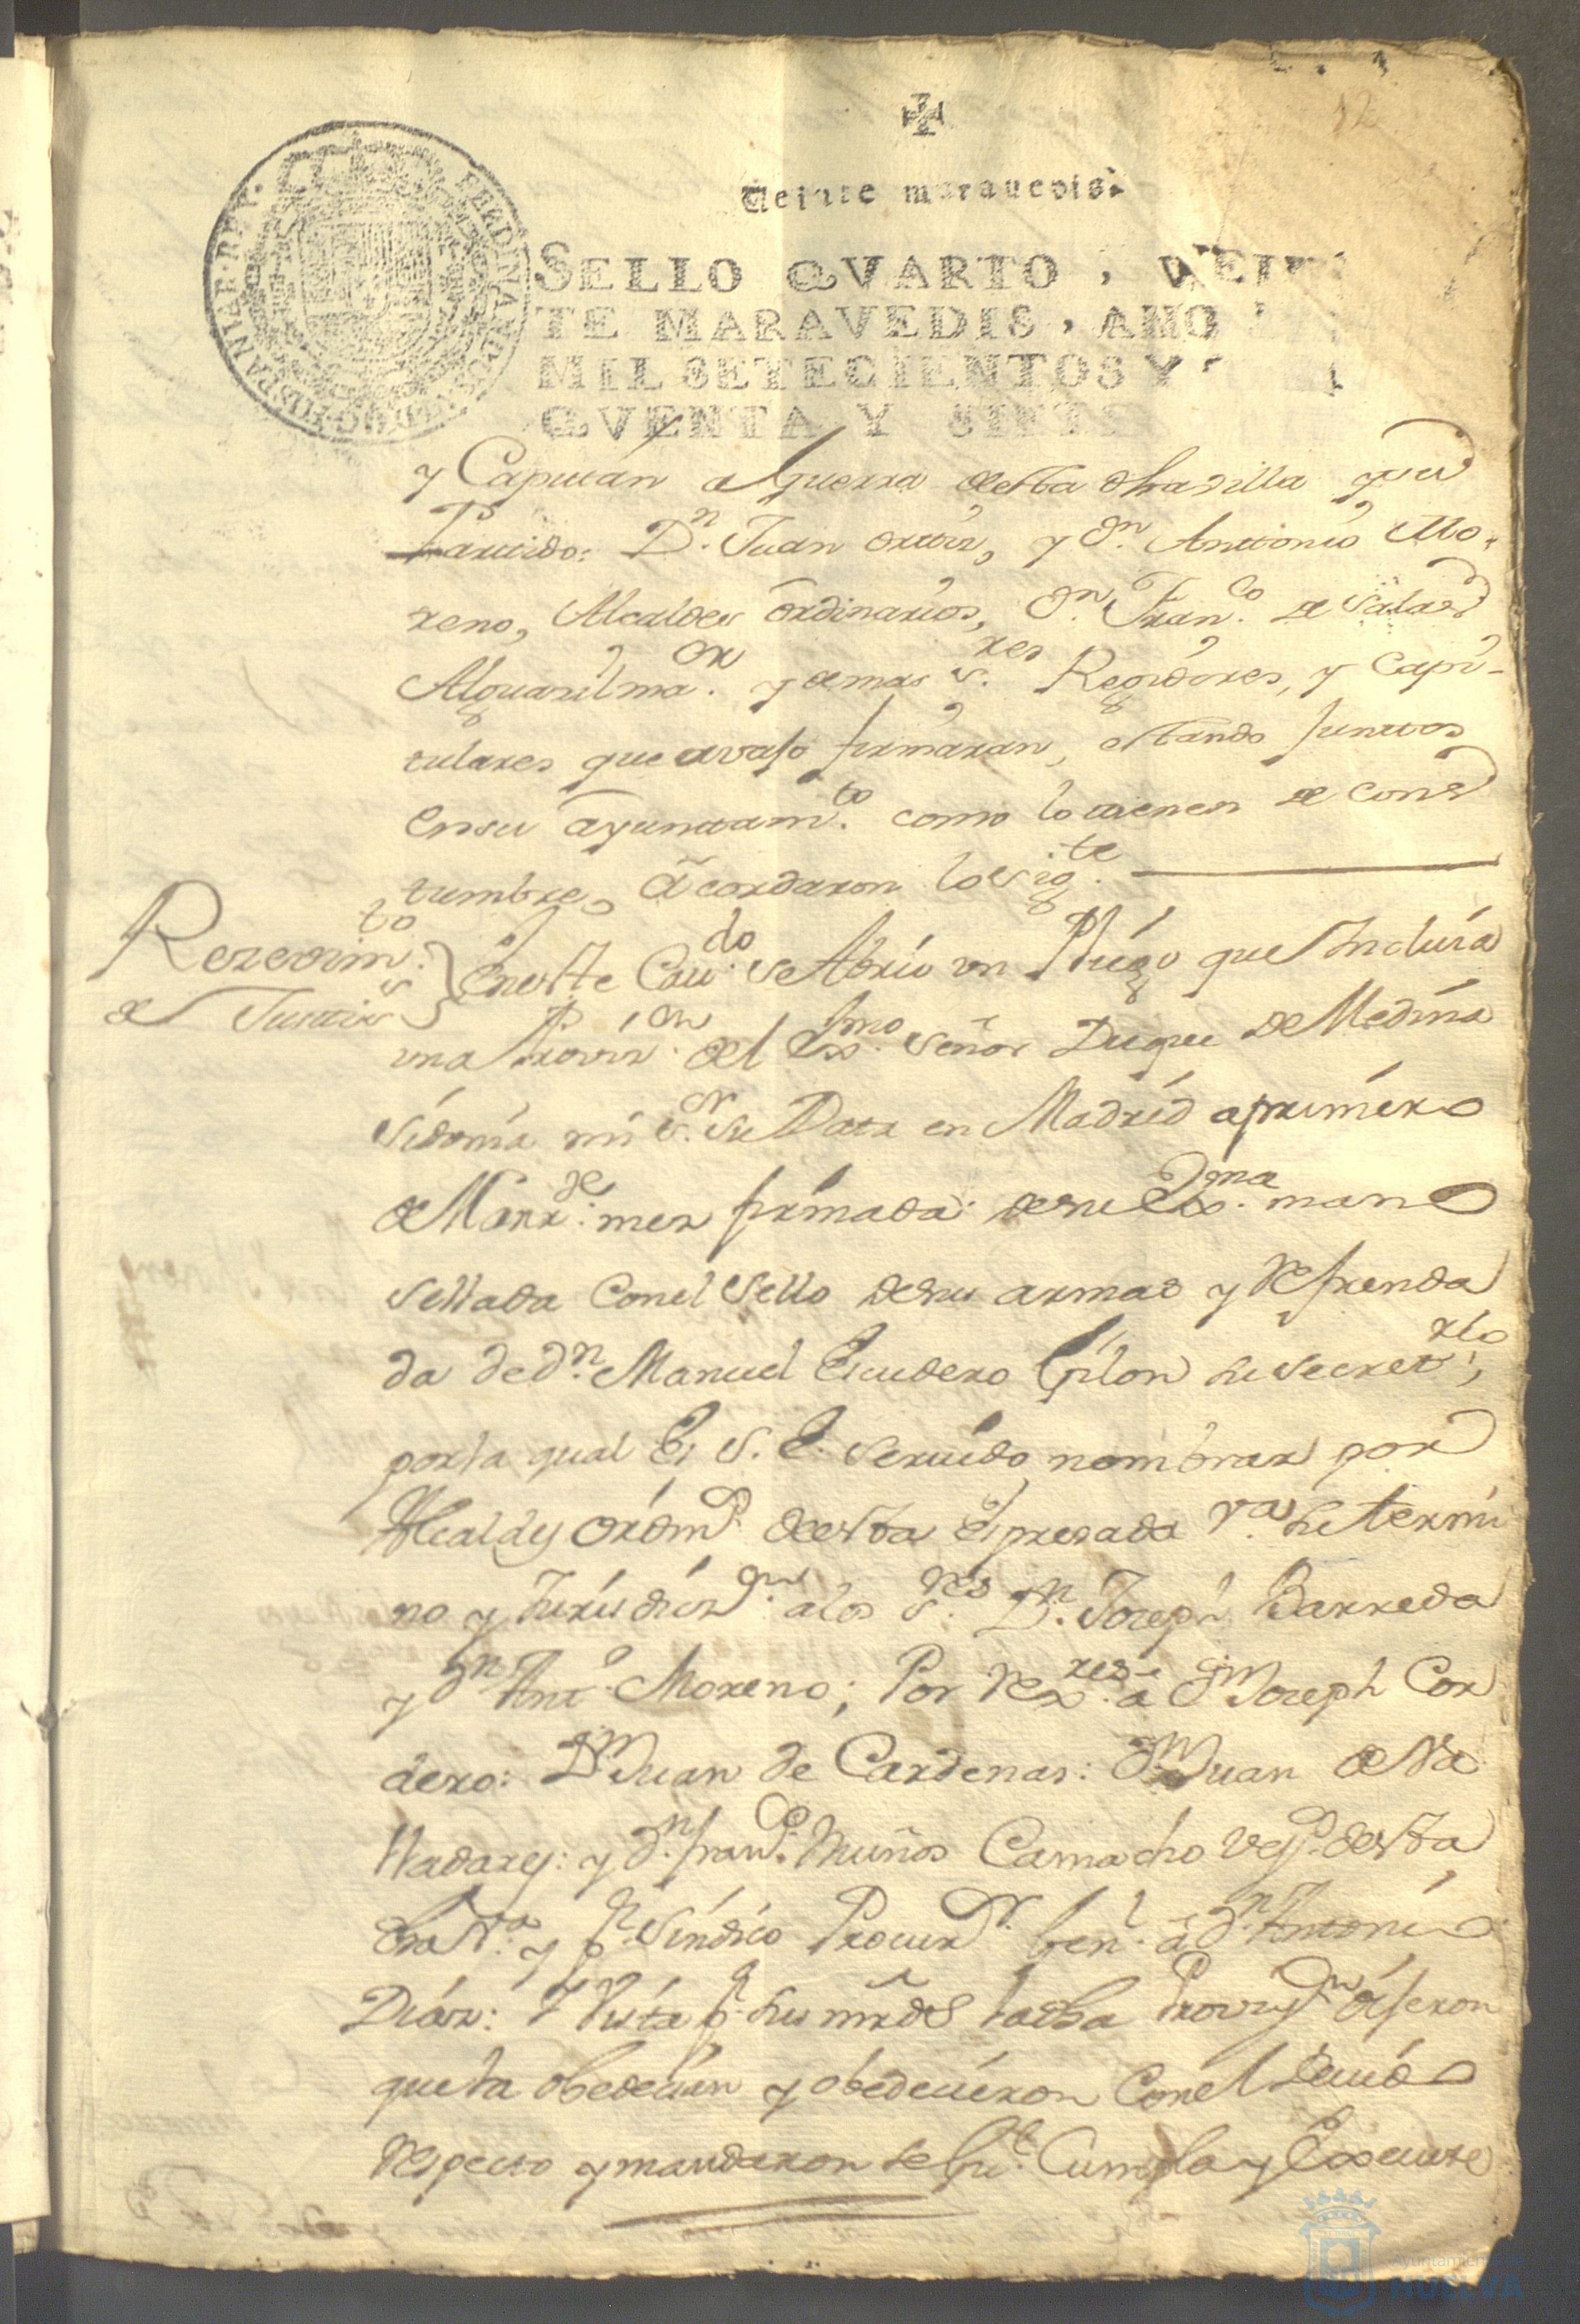 12
Veinte marauedis.
SELLO QVARTO, VEIN
TE MARAVEDIS, AÑO
MIL SETECIENTOS Y
QVENTA Y SIETE
FERDINANDUS HISPANIAR. REX.
y Capitan a guerra de esta dha villa y su
Partido: Dn. Juan Ortiz, y Dn. Antonio Mo-
reno, Alcaldes ordinarios, Dn. Franco. de Salas
Alguasilmaor. y demas sres. Regidores, y Capi-
tulares que avajo firmaran, estando juntos
en su ayuntamto. como lo tienen de cons
tumbre, acordaron lo sigte.
Rezevimto.
de Justizs
En este Caudo. se Abrio vn Pliego que Incluia
una Provizon. del Exmo. Señor Duque de Medina
Sidonia mi sor. su Data en Madrid a primero
de Marze. mes firmada: de su Exma. mano
sellada con el sello de sus armas y Refrenda
da de dn. Manuel Escudero Gilon su Secretrio,
por la qual Es S. E. seruido nombrar por
Alcaldes ordins. de esta Espresada va. su termi
no y Jurisdizon. a los sres. Dn. Joseph Barreda
y dn. Anto. Moreno; Por Rexres. a dn Joseph Cor
dero: Dn Juan de Cardenas: dn Juan de Va
lladares: y dn. franco. Muños Camacho vesos. de esta
dha Va. y pr. Sindico Procurdr. Genl. a dn. Antonio
Diaz: Y Vista pr. sus mrds la dha Provizon dijeron
que la obedecian y obedecieron con el deuido
respecto y mandaron se Gue. Cumpla y Execute
Ayuntamiento
HUELVA